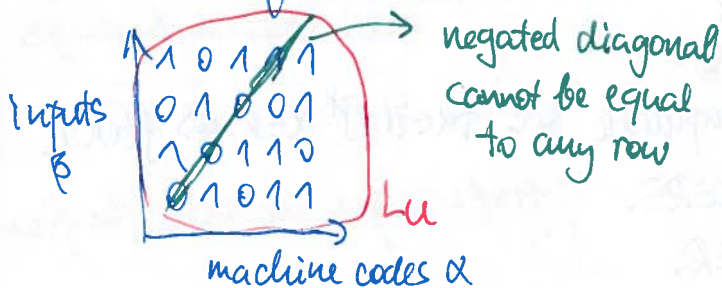 1 0 1 0 1
negated diagonal
cannot be equal
to any row
Inputs
β
0 1 0 0 1
1 0 1 1 0
0 1 0 1 1
Lu
machine codes α